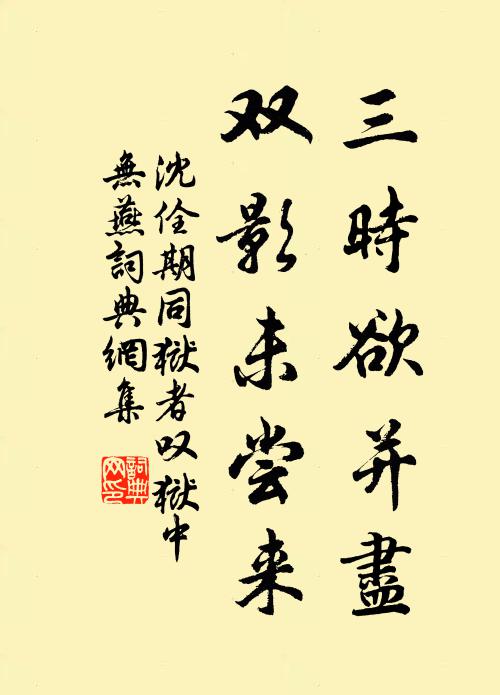 三時欲并盡
双影未尝来
沈佺期同獄者叹獄中
無燕詞典網集
詞典网印